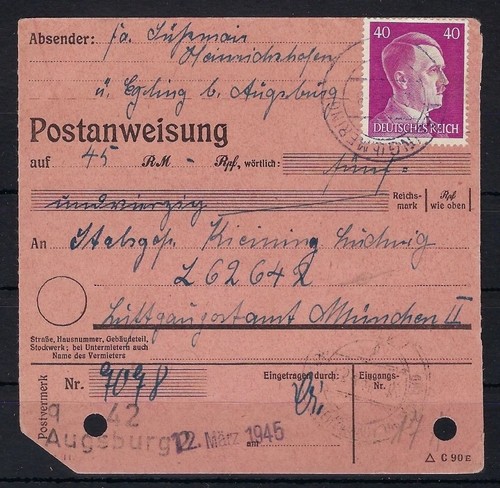 Absender: Fa. Süßmair
Heinrichshofen
ü. Egling b. Augsburg
40 40
DEUTSCHES REICH
Postanweisung
auf 45 RM - Rpf, wörtlich: fünf=
undvierzig
Reichs-mark | Rpf wie oben
An Stabsgefr. Kleining Ludwig
L 62642
Luftgaupostamt München II
Straße, Hausnummer, Gebäudeteil,
Stockwerk; bei Untermietern auch
Name des Vermieters
Postvermerk
Nr. 9098
Eingetragen durch:
Eingangs-Nr.
9 42
Augsburg 2
12. März 1945
am
△ C 90 E